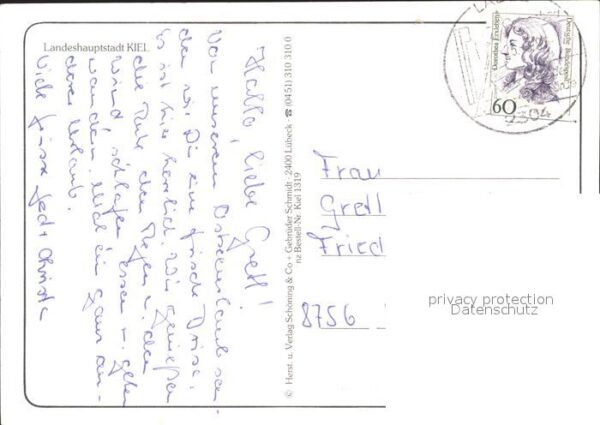 Landeshauptstadt KIEL
Hallo, liebe Gretl!
Von unserem Ostseeurlaub sen-
den wir Dir eine frische Brise.
Es ist hier herrlich. Wir genießen
die Ruhe, den Regen u. den
Wind, schlafen, essen u. gehen
wandern. Mal ein ganz an-
derer Urlaub.
Viele Grüsse
© Herst. u. Verlag Schöning & Co + Gebrüder Schmidt · 2400 Lübeck · ☎ (0451) 310 310 0
nz Bestell-Nr. Kiel 1319
Dorothea Erxleben
Deutsche Bundespost
60
2304
Frau
Gretl
Fried
8756
privacy protection
Datenschutz